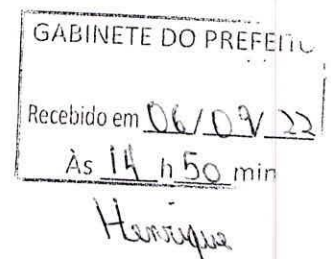 GABINETE DO PREFEITO
Recebido em 06/09/22
Às 14 h 50 min
Henrique